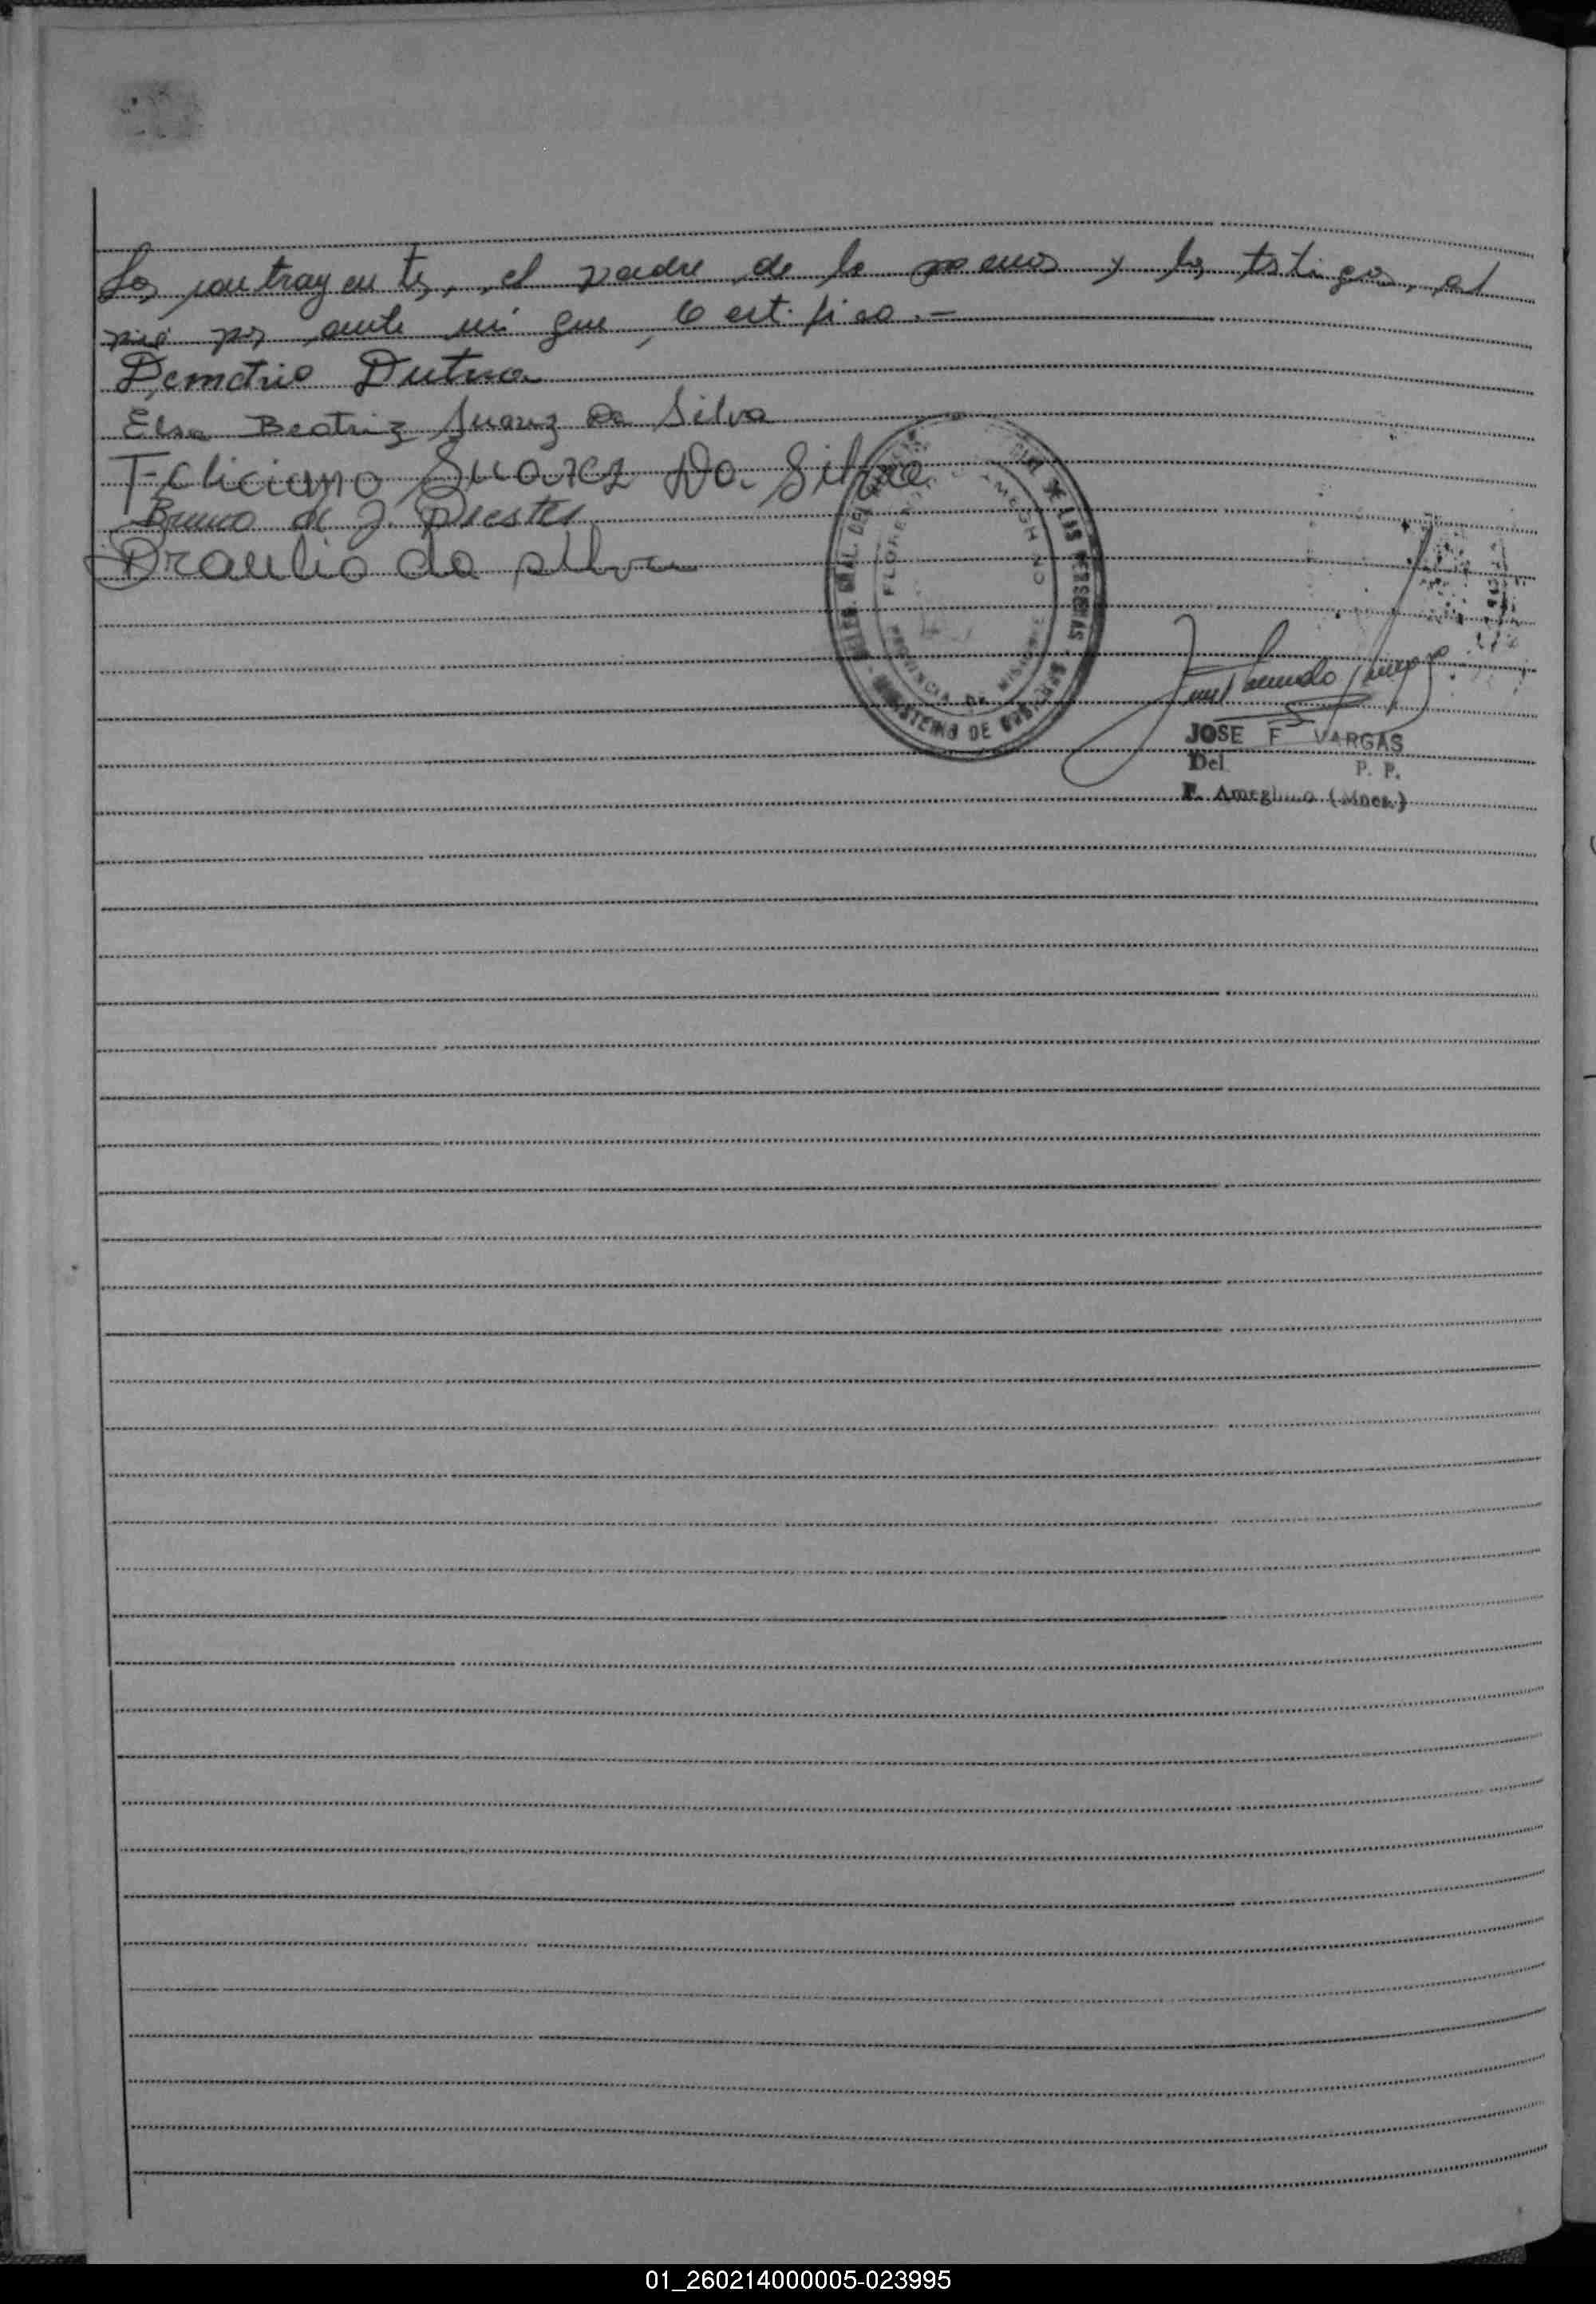 Los contrayentes, el padre de la menor y los testigos, al
pié por ante mi que, Certifico.-
Demetrio Dutra
Elsa Beatriz Suarez Da Silva
Feliciano Suarez Da Silva
Bruno
Braulio da silva
FLORENTINO AMEGHINO
PROVINCIA DE MISIONES
MINISTERIO DE GOBIERNO
DE LAS PERSONAS
JOSE F VARGAS
Del P. P.
F. Ameghino (Mnes.)
01_260214000005-023995